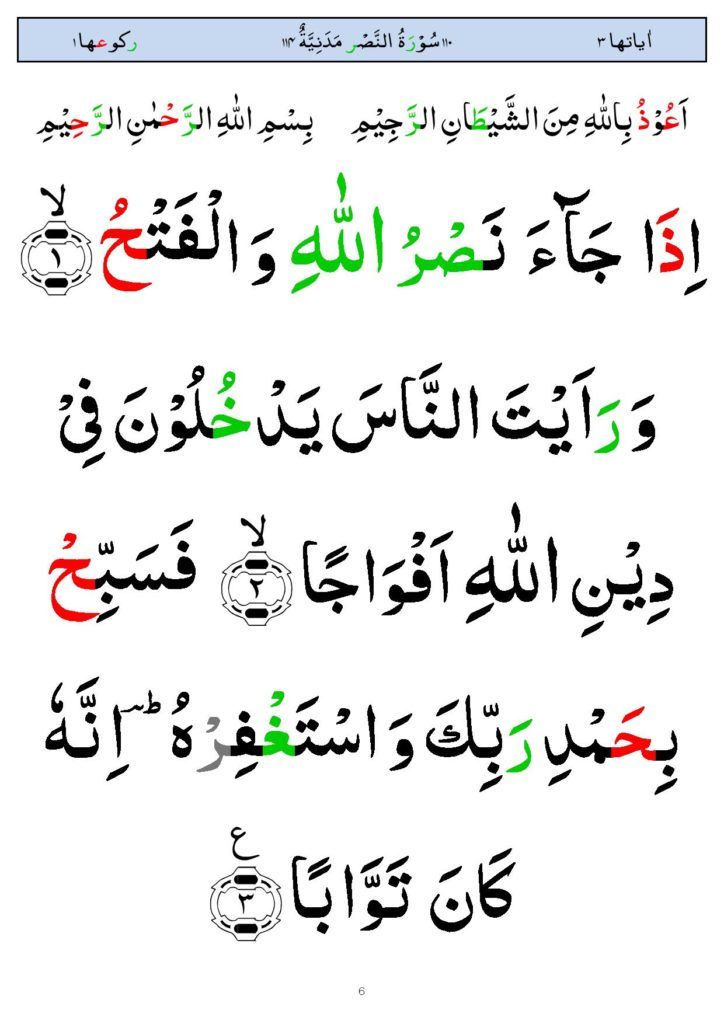 اٰیاتها ٣ ١١٠ سُوْرَةُ النَّصْرِ مَدَنِيَّةٌ ١١٤ ركوعها ١
اَعُوْذُ بِاللّٰهِ مِنَ الشَّيْطَانِ الرَّجِيْمِ بِسْمِ اللّٰهِ الرَّحْمٰنِ الرَّحِيْمِ
اِذَا جَآءَ نَصْرُ اللّٰهِ وَ الْفَتْحُ ۙ ﴿١﴾
وَ رَاَيْتَ النَّاسَ يَدْخُلُوْنَ فِيْ
دِيْنِ اللّٰهِ اَفْوَاجًا ۙ ﴿٢﴾ فَسَبِّحْ
بِحَمْدِ رَبِّكَ وَ اسْتَغْفِرْهُ ؕ اِنَّهٗ
كَانَ تَوَّابًا ﴿٣﴾ ع
6